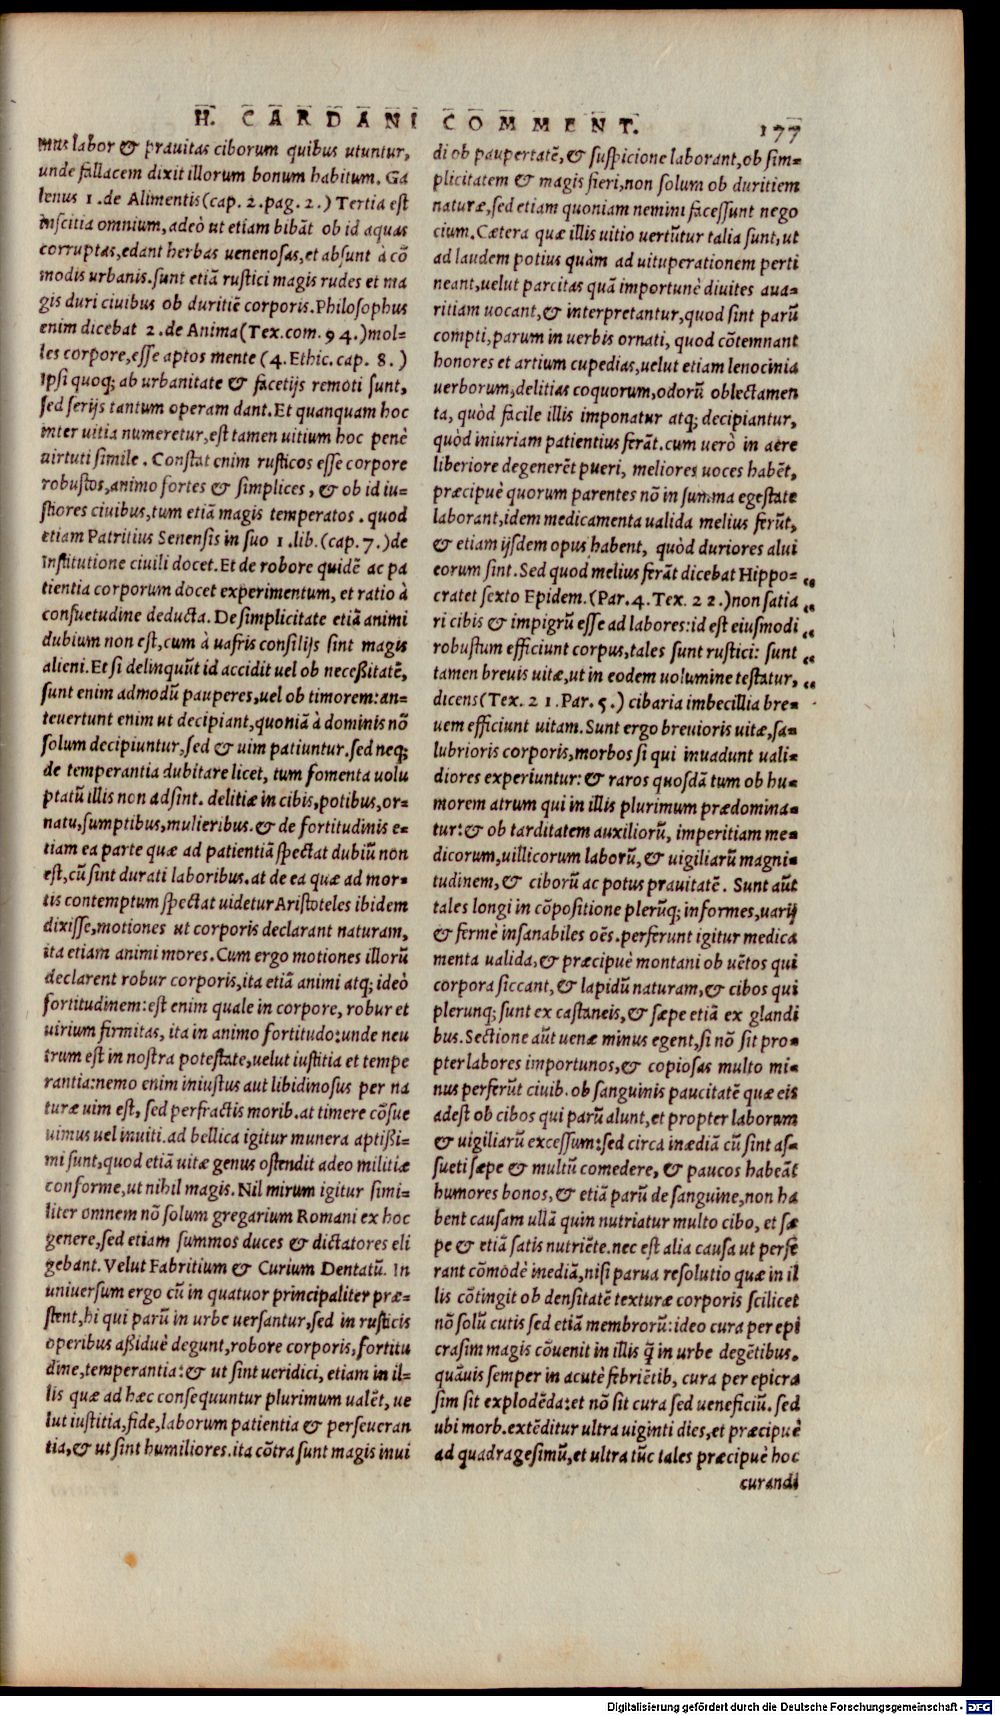 H. CARDANI COMMENT. 177
mus labor & prauitas ciborum quibus utuntur,
unde fallacem dixit illorum bonum habitum. Ga
lenus 1. de Alimentis (cap. 2. pag. 2.) Tertia est
inscitia omnium, adeò ut etiam bibāt ob id aquas
corruptas, edant herbas uenenosas, et absunt à cō
modis urbanis. sunt etiā rustici magis rudes et ma
gis duri ciuibus ob duritiē corporis. Philosophus
enim dicebat 2. de Anima (Tex. com. 94.) mol-
les corpore, esse aptos mente (4. Ethic. cap. 8.)
Ipsi quoq; ab urbanitate & facetijs remoti sunt,
sed serijs tantum operam dant. Et quanquam hoc
inter uitia numeretur, est tamen uitium hoc penè
uirtuti simile. Constat enim rusticos esse corpore
robustos, animo fortes & simplices, & ob id iu-
stiores ciuibus, tum etiā magis temperatos. quod
etiam Patritius Senensis in suo 1. lib. (cap. 7.) de
institutione ciuili docet. Et de robore quidē ac pa
tientia corporum docet experimentum, et ratio à
consuetudine deducta. De simplicitate etiā animi
dubium non est, cum à uafris consilijs sint magis
alieni. Et si delinquūt id accidit uel ob necessitatē,
sunt enim admodū pauperes, uel ob timorem: an-
teuertunt enim ut decipiant, quoniā à dominis nō
solum decipiuntur, sed & uim patiuntur. sed neq;
de temperantia dubitare licet, tum fomenta uolu
ptatū illis non adsint. delitiæ in cibis, potibus, or-
natu, sumptibus, mulieribus. & de fortitudinis e-
tiam ea parte quæ ad patientiā spectat dubiū non
est, cū sint durati laboribus. at de ea quæ ad mor-
tis contemptum spectat uidetur Aristoteles ibidem
dixisse, motiones ut corporis declarant naturam,
ita etiam animi mores. Cum ergo motiones illorū
declarent robur corporis, ita etiā animi atq; ideò
fortitudinem: est enim quale in corpore, robur et
uirium firmitas, ita in animo fortitudo: unde neu
trum est in nostra potestate, uelut iustitia et tempe
rantia: nemo enim iniustus aut libidinosus per na
turæ uim est, sed perfractis morib. at timere cōsue
uimus uel inuiti. ad bellica igitur munera aptissi-
mi sunt, quod etiā uitæ genus ostendit adeo militiæ
conforme, ut nihil magis. Nil mirum igitur simi-
liter omnem nō solum gregarium Romani ex hoc
genere, sed etiam summos duces & dictatores eli
gebant. Velut Fabritium & Curium Dentatū. In
uniuersum ergo cū in quatuor principaliter præ-
stent, hi qui parū in urbe uersantur, sed in rusticis
operibus assiduè degunt, robore corporis, fortitu
dine, temperantia: & ut sint ueridici, etiam in il-
lis quæ ad hæc consequuntur plurimum ualēt, ue
lut iustitia, fide, laborum patientia & perseueran
tia, & ut sint humiliores. ita cōtra sunt magis inui
di ob paupertatē, & suspicione laborant, ob sim-
plicitatem & magis fieri, non solum ob duritiem
naturæ, sed etiam quoniam nemini facessunt nego
cium. Cætera quæ illis uitio uertūtur talia sunt, ut
ad laudem potius quàm ad uituperationem perti
neant, uelut parcitas quā importunè diuites aua-
ritiam uocant, & interpretantur, quod sint parū
compti, parum in uerbis ornati, quod cōtemnant
honores et artium cupedias, uelut etiam lenocinia
uerborum, delitias coquorum, odorū oblectamen
ta, quòd facile illis imponatur atq; decipiantur,
quòd iniuriam patientius ferāt. cum uerò in aëre
liberiore degenerēt pueri, meliores uoces habēt,
præcipuè quorum parentes nō in summa egestate
laborant, idem medicamenta ualida melius ferūt,
& etiam ijsdem opus habent, quòd duriores alui
eorum sint. Sed quod melius ferāt dicebat Hippo- „
crates sexto Epidem. (Par. 4. Tex. 22.) non satia „
ri cibis & impigrū esse ad labores: id est eiusmodi „
robustum efficiunt corpus, tales sunt rustici: sunt „
tamen breuis uitæ, ut in eodem uolumine testatur, „
dicens (Tex. 21. Par. 5.) cibaria imbecillia bre-
uem efficiunt uitam. Sunt ergo breuioris uitæ, sa-
lubrioris corporis, morbos si qui inuadunt uali-
diores experiuntur: & raros quosdā tum ob hu-
morem atrum qui in illis plurimum prædomina-
tur: & ob tarditatem auxiliorū, imperitiam me-
dicorum, uillicorum laborū, & uigiliarū magni-
tudinem, & ciborū ac potus prauitatē. Sunt aūt
tales longi in cōpositione plerūq; informes, uarij
& fermè insanabiles oēs. perferunt igitur medica
menta ualida, & præcipuè montani ob uētos qui
corpora siccant, & lapidū naturam, & cibos qui
plerunq; sunt ex castaneis, & sæpe etiā ex glandi
bus. Sectione aūt uenæ minus egent, si nō sit pro-
pter labores importunos, & copiosas multo mi-
nus perferūt ciuib. ob sanguinis paucitatē quæ eis
adest ob cibos qui parū alunt, et propter laborum
& uigiliarū excessum: sed circa inædiā cū sint as-
sueti sæpe & multū comedere, & paucos habeāt
humores bonos, & etiā parū de sanguine, non ha
bent causam ullā quin nutriatur multo cibo, et sæ
pe & etiā satis nutriēte. nec est alia causa ut perfe
rant cōmodè inediā, nisi parua resolutio quæ in il
lis cōtingit ob densitatē texturæ corporis scilicet
nō solū cutis sed etiā membrorū: ideo cura per epi
crasim magis cōuenit in illis q̄ in urbe degētibus.
quāuis semper in acutè febriētib, cura per epicra
sim sit explodēda: et nō sit cura sed ueneficiū. sed
ubi morb. extēditur ultra uiginti dies, et præcipuè
ad quadragesimū, et ultra tūc tales præcipuè hoc
curandi
Digitalisierung gefördert durch die Deutsche Forschungsgemeinschaft - DFG